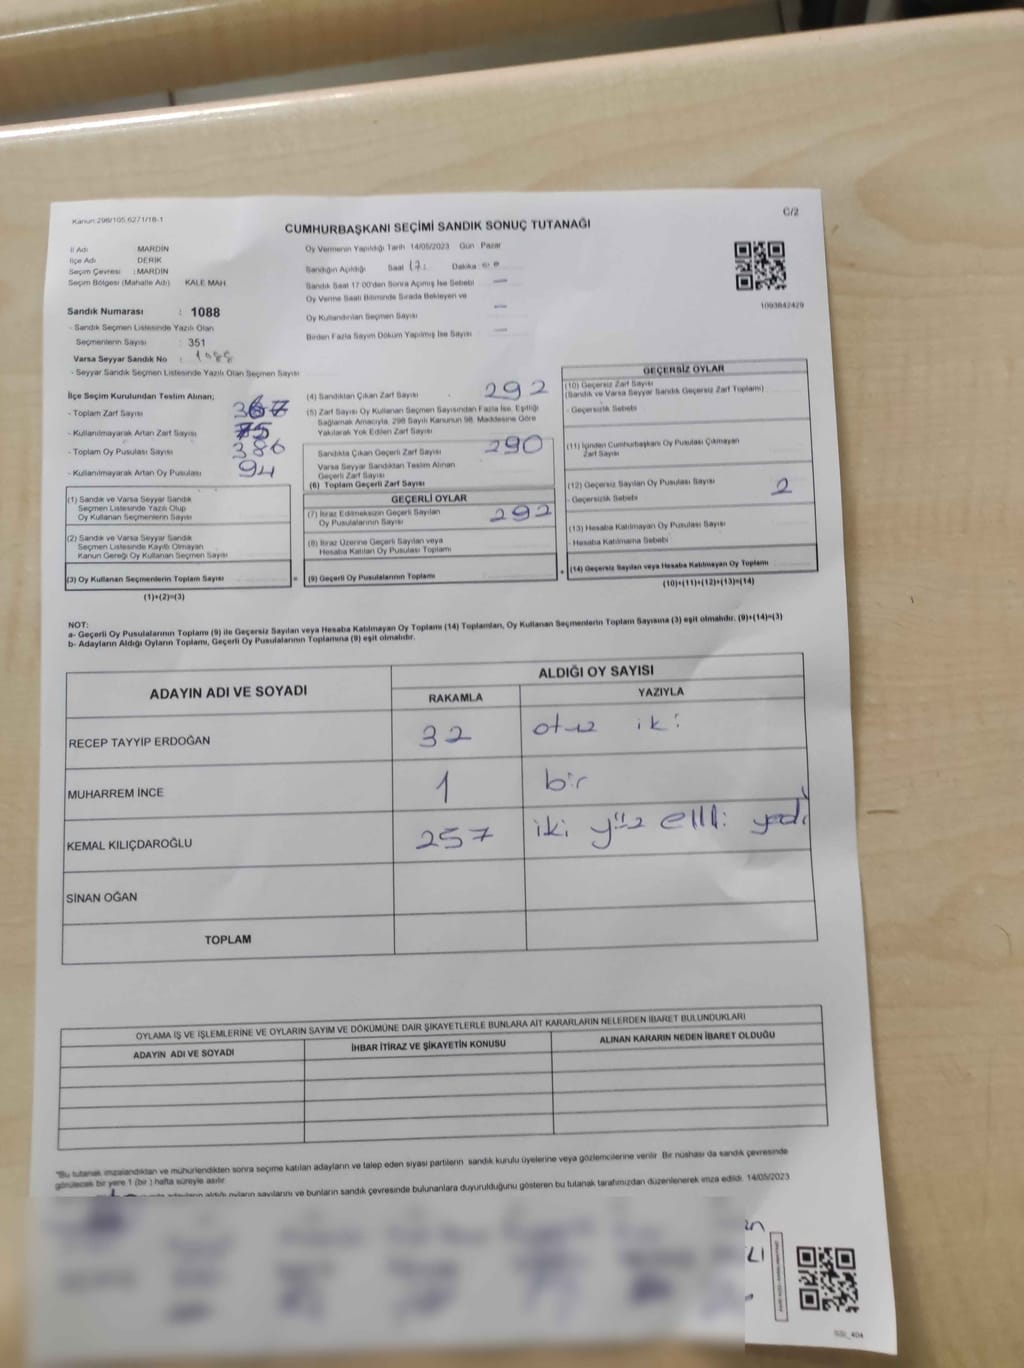 Kanun:298/105,6271/18-1
C/2
CUMHURBAŞKANI SEÇİMİ SANDIK SONUÇ TUTANAĞI
İl Adı : MARDİN
İlçe Adı : DERİK
Seçim Çevresi : MARDİN
Seçim Bölgesi (Mahalle Adı) KALE MAH.
Sandık Numarası : 1088
- Sandık Seçmen Listesinde Yazılı Olan
Seçmenlerin Sayısı : 351
Varsa Seyyar Sandık No : 1088
- Seyyar Sandık Seçmen Listesinde Yazılı Olan Seçmen Sayısı
Oy Vermenin Yapıldığı Tarih 14/05/2023 Gün : Pazar
Sandığın Açıldığı Saat 17: Dakika
Sandık Saat 17.00'den Sonra Açılmış İse Sebebi —
Oy Verme Saati Bitiminde Sırada Bekleyen ve
Oy Kullandırılan Seçmen Sayısı —
Birden Fazla Sayım Döküm Yapılmış İse Sayısı —
1093842429
İlçe Seçim Kurulundan Teslim Alınan;
- Toplam Zarf Sayısı 367
- Kullanılmayarak Artan Zarf Sayısı 75
- Toplam Oy Pusulası Sayısı 386
- Kullanılmayarak Artan Oy Pusulası 94
(1) Sandık ve Varsa Seyyar Sandık
Seçmen Listesinde Yazılı Olup
Oy Kullanan Seçmenlerin Sayısı
(2) Sandık ve Varsa Seyyar Sandık
Seçmen Listesinde Kayıtlı Olmayan
Kanun Gereği Oy Kullanan Seçmen Sayısı
(3) Oy Kullanan Seçmenlerin Toplam Sayısı
(1)+(2)=(3)
(4) Sandıktan Çıkan Zarf Sayısı 292
(5) Zarf Sayısı Oy Kullanan Seçmen Sayısından Fazla İse, Eşitliği
Sağlamak Amacıyla, 298 Sayılı Kanunun 98. Maddesine Göre
Yakılarak Yok Edilen Zarf Sayısı
Sandıkta Çıkan Geçerli Zarf Sayısı 290
Varsa Seyyar Sandıktan Teslim Alınan
Geçerli Zarf Sayısı
(6) Toplam Geçerli Zarf Sayısı
GEÇERLİ OYLAR
(7) İtiraz Edilmeksizin Geçerli Sayılan
Oy Pusulalarının Sayısı 292
(8) İtiraz Üzerine Geçerli Sayılan veya
Hesaba Katılan Oy Pusulası Toplamı
= (9) Geçerli Oy Pusulalarının Toplamı
GEÇERSİZ OYLAR
(10) Geçersiz Zarf Sayısı
(Sandık ve Varsa Seyyar Sandık Geçersiz Zarf Toplamı)
- Geçersizlik Sebebi
(11) İçinden Cumhurbaşkanı Oy Pusulası Çıkmayan
Zarf Sayısı
(12) Geçersiz Sayılan Oy Pusulası Sayısı 2
- Geçersizlik Sebebi
(13) Hesaba Katılmayan Oy Pusulası Sayısı
- Hesaba Katılmama Sebebi
+ (14) Geçersiz Sayılan veya Hesaba Katılmayan Oy Toplamı
(10)+(11)+(12)+(13)=(14)
NOT:
a- Geçerli Oy Pusulalarının Toplamı (9) ile Geçersiz Sayılan veya Hesaba Katılmayan Oy Toplamı (14) Toplamları, Oy Kullanan Seçmenlerin Toplam Sayısına (3) eşit olmalıdır. (9)+(14)=(3)
b- Adayların Aldığı Oyların Toplamı, Geçerli Oy Pusulalarının Toplamına (9) eşit olmalıdır.
ADAYIN ADI VE SOYADI
ALDIĞI OY SAYISI
RAKAMLA YAZIYLA
RECEP TAYYİP ERDOĞAN 32 otuz iki
MUHARREM İNCE 1 bir
KEMAL KILIÇDAROĞLU 257 iki yüz elli yedi
SİNAN OĞAN
TOPLAM
OYLAMA İŞ VE İŞLEMLERİNE VE OYLARIN SAYIM VE DÖKÜMÜNE DAİR ŞİKAYETLERLE BUNLARA AİT KARARLARIN NELERDEN İBARET BULUNDUKLARI
ADAYIN ADI VE SOYADI İHBAR İTİRAZ VE ŞİKAYETİN KONUSU ALINAN KARARIN NEDEN İBARET OLDUĞU
"Bu tutanak imzalandıktan ve mühürlendikten sonra seçime katılan adayların ve talep eden siyasi partilerin sandık kurulu üyelerine veya gözlemcilerine verilir. Bir nüshası da sandık çevresinde
görülecek bir yere 1 (bir ) hafta süreyle asılır.
adayların aldığı oyların sayılarını ve bunların sandık çevresinde bulunanlara duyurulduğunu gösteren bu tutanak tarafımızdan düzenlenerek imza edildi. 14/05/2023